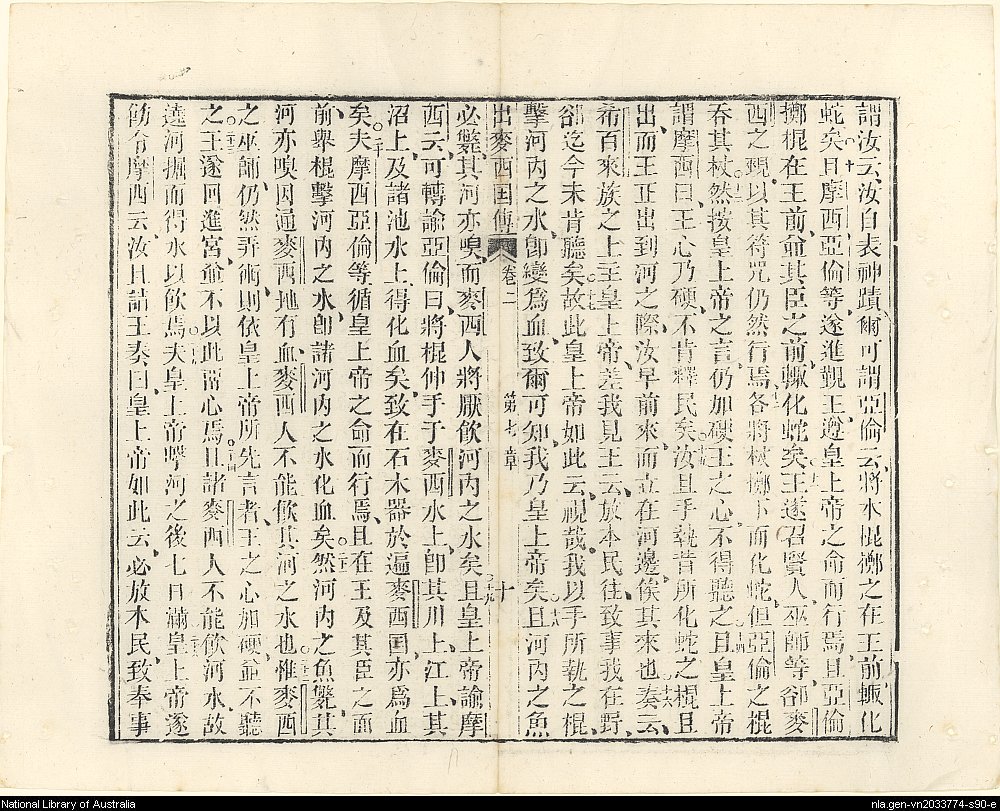 謂汝云汝自表神蹟爾可謂亞倫云將木棍擲之在王前輙化
蛇矣○十且摩西亞倫等遂進覲王遵皇上帝之命而行焉且亞倫
擲棍在王前並其臣之前輙化蛇矣十一王遂召賢人巫師等卻麥
西之覡以其符咒仍然行焉十二各將杖擲下而化蛇但亞倫之棍
吞其杖十三然按皇上帝之言仍加硬王之心不得聽之十四且皇上帝
謂摩西曰王心乃硬不肯釋民矣十五汝且手執昔所化蛇之棍且
出而王正出到河之際汝早前來而立在河邊俟其來也十六奏云
希百來族之上主皇上帝差我見王云放本民往致事我在野
卻迄今未肯聽矣十七故此皇上帝如此云視哉我以手所執之棍
擊河内之水卽變爲血致爾可知我乃皇上帝矣十八且河内之魚
出麥西囯傳 卷二 第七章 十
必斃其河亦嗅而麥西人將厭飲河内之水矣○十九且皇上帝諭摩
西云可轉諭亞倫曰將棍伸手于麥西水上卽其川上江上其
沼上及諸池水上得化血矣致在石木器於遍麥西囯亦爲血
矣○二十夫摩西亞倫等循皇上帝之命而行焉且在王及其臣之面
前舉棍擊河内之水卽諸河内之水化血矣二十一然河内之魚斃其
河亦嗅因通麥西地有血麥西人不能飲其河之水也二十二惟麥西
之巫師仍然弄術則依皇上帝所先言者王之心加硬並不聽
之○二十三王遂回進宮並不以此畱心焉○二十四且諸麥西人不能飲河水故
遶河掘而得水以飲焉○二十五夫皇上帝擊河之後七日滿皇上帝遂
飭令摩西云汝且詣王奏曰皇上帝如此云必放本民致奉事
National Library of Australia
nla.gen-vn2033774-s90-e